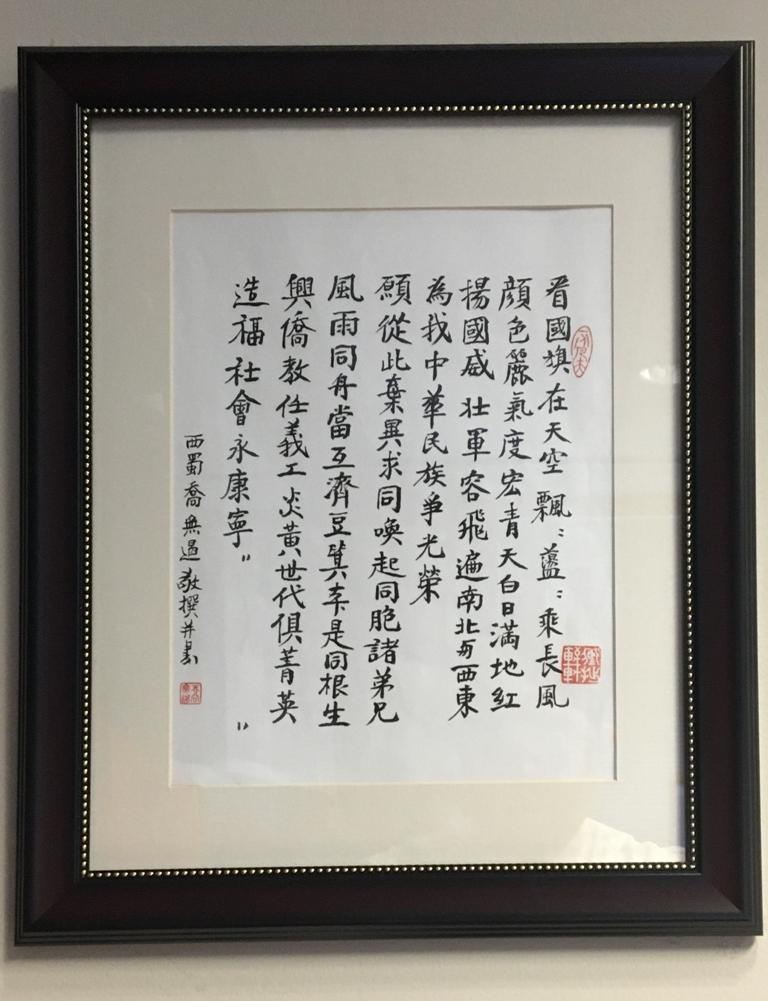 看國旗在天空飄：蘯：乘長風
顏色麗氣度宏青天白日滿地紅
揚國威 壯軍容飛遍南北与西東
為我中華民族爭光榮
願從此棄異求同喚起同胞諸弟兄
風雨同舟當互濟豆萁本是同根生
興僑教任義工炎黃世代俱菁英
造福社會永康寧〃 〃
西蜀喬無過敬撰并書